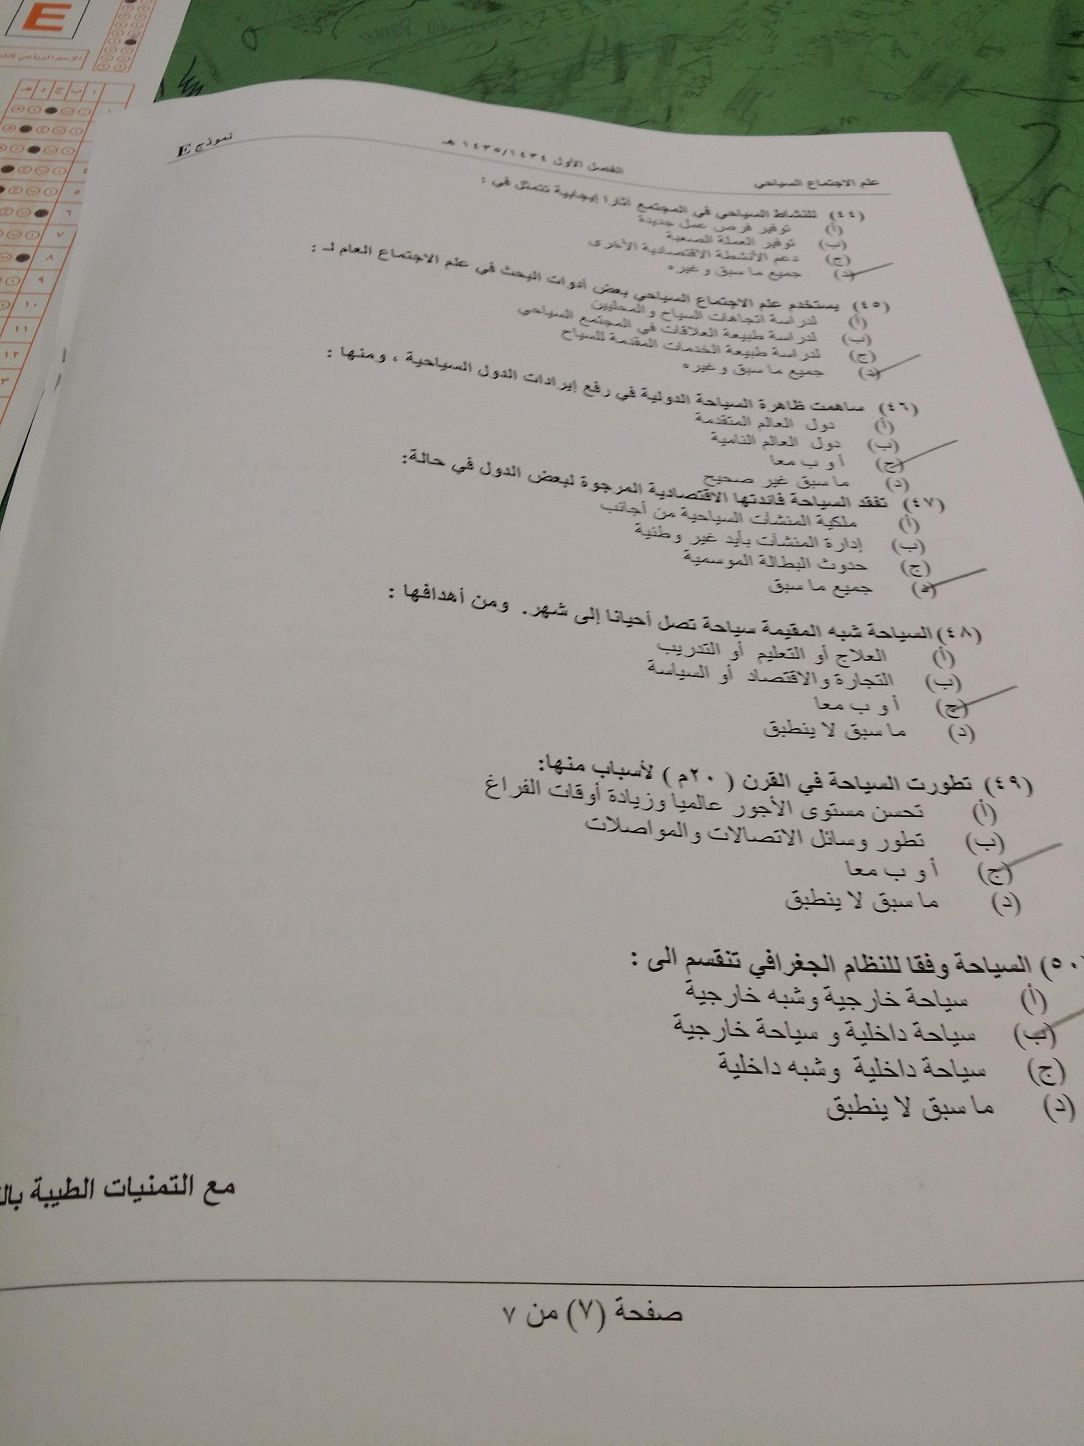 E
علم الاجتماع السياحي الفصل الأول ١٤٣٥/١٤٣٤ هـ نموذج E
(٤٤) للنشاط السياحي في المجتمع آثارا إيجابية تتمثل في :
(أ) توفير فرص عمل جديدة
(ب) توفير العملة الصعبة
(ج) دعم الأنشطة الاقتصادية الأخرى
(د) جميع ما سبق وغيره
(٤٥) يستخدم علم الاجتماع السياحي بعض أدوات البحث في علم الاجتماع العام لـ :
(أ) لدراسة اتجاهات السياح والمحليين
(ب) لدراسة طبيعة العلاقات في المجتمع السياحي
(ج) لدراسة طبيعة الخدمات المقدمة للسياح
(د) جميع ما سبق وغيره
(٤٦) ساهمت ظاهرة السياحة الدولية في رفع إيرادات الدول السياحية ، ومنها :
(أ) دول العالم المتقدمة
(ب) دول العالم النامية
(ج) أ و ب معا
(د) ما سبق غير صحيح
(٤٧) تفقد السياحة فائدتها الاقتصادية المرجوة لبعض الدول في حالة:
(أ) ملكية المنشآت السياحية من أجانب
(ب) إدارة المنشآت بأيد غير وطنية
(ج) حدوث البطالة الموسمية
(د) جميع ما سبق
(٤٨) السياحة شبه المقيمة سياحة تصل أحيانا إلى شهر. ومن أهدافها :
(أ) العلاج أو التعليم أو التدريب
(ب) التجارة والاقتصاد أو السياسة
(ج) أ و ب معا
(د) ما سبق لا ينطبق
(٤٩) تطورت السياحة في القرن ( ٢٠م ) لأسباب منها:
(أ) تحسن مستوى الأجور عالميا وزيادة أوقات الفراغ
(ب) تطور وسائل الاتصالات والمواصلات
(ج) أ و ب معا
(د) ما سبق لا ينطبق
٥٠) السياحة وفقا للنظام الجغرافي تنقسم الى :
(أ) سياحة خارجية وشبه خارجية
(ب) سياحة داخلية و سياحة خارجية
(ج) سياحة داخلية وشبه داخلية
(د) ما سبق لا ينطبق
مع التمنيات الطيبة
صفحة (٧) من ٧